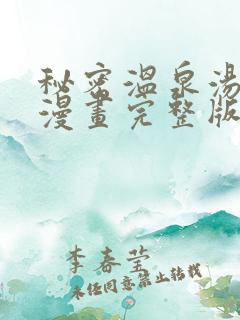 秘密溫泉湯
漫畫完整版
李春瑩
未经同意禁止转载